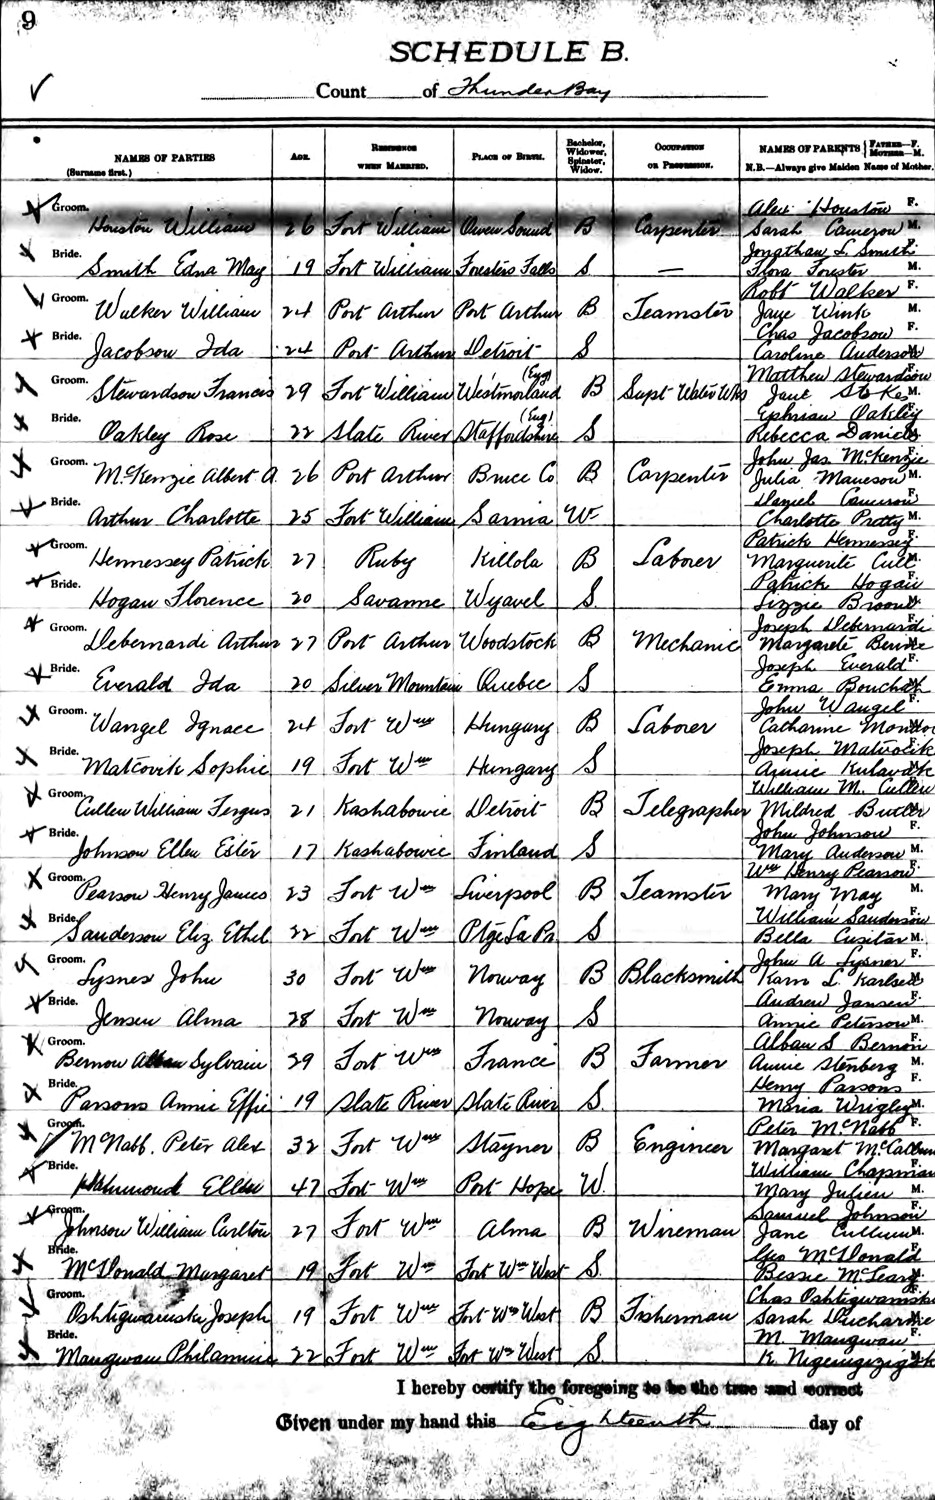 9
SCHEDULE B.
Count of Thunder Bay
NAMES OF PARTIES (Surname first.) AGE. RESIDENCE WHEN MARRIED. PLACE OF BIRTH. Bachelor, Widower, Spinster, Widow. OCCUPATION OR PROFESSION. NAMES OF PARENTS { FATHER—F. MOTHER—M. N.B.—Always give Maiden Name of Mother.
Alex Houston F.
Groom. Houston William 26 Fort William Owen Sound B Carpenter Sarah Cameron M.
Jonathan L. Smith F.
Bride. Smith Edna May 19 Fort William Foresters Falls S. — Flora Forester M.
Robt Walker F.
Groom. Walker William 24 Port Arthur Port Arthur B Teamster Jane Wink M.
Chas Jacobson F.
Bride. Jacobson Ida 24 Port Arthur Detroit S Caroline Anderson M.
Matthew Stewardson
Groom. Stewardson Francis 29 Fort William Westmorland (Eng) B Supt Water Wks Jane Stokes M.
Ephriam Oakley
Bride. Oakley Rose 22 Slate River Staffordshire (Eng) S Rebecca Daniels
John Jas. McKenzie
Groom. McKenzie Albert A. 26 Port Arthur Bruce Co B Carpenter Julia M.
Daniel Cameron F.
Bride. Arthur Charlotte 25 Fort William Sarnia W Charlotte Pretty M.
Patrick Hennessey F.
Groom. Hennessey Patrick 27 Ruby Killola B Laborer Marguerite Cull M.
Patrick Hogan F.
Bride. Hogan Florence 20 Savanne Wyavel S. Lizzie
Joseph Debernardi
Groom. Debernardi Arthur 27 Port Arthur Woodstock B Mechanic Margarete
Joseph Everald F.
Bride. Everald Ida 20 Silver Mountain Quebec S Emma
John Wangel F.
Groom. Wangel Ignace 24 Fort Wm Hungary B Laborer Catharine
Joseph
Bride. Matcovik Sophie 19 Fort Wm Hungary S Annie
William M. Cullen
Groom. Cullen William Fergus 21 Kashabowie Detroit B Telegrapher Mildred Butler
John Johnson F.
Bride. Johnson Ellen Ester 17 Kashabowie Finland S Mary Anderson M.
Wm Henry Pearson F.
Groom. Pearson Henry James 23 Fort Wm Liverpool B Teamster Mary May M.
William Sanderson
Bride. Sanderson Eliz Ethel 22 Fort Wm Ptge La Pr S Bella Cusitar M.
John A Lysnes F.
Groom. Lysnes John 30 Fort Wm Norway B Blacksmith Karn L. Karlsen
Andrew Jansen F.
Bride. Jensen Alma 28 Fort Wm Norway S Annie Peterson M.
Alban S Bernon
Groom. Bernon Alban Sylvain 29 Fort Wm France B Farmer Annie Stenberg M.
Henry Parsons F.
Bride. Parsons Annie Effie 19 Slate River Slate River S. Maria Wrigley M.
Peter McNabb F.
Groom. McNabb. Peter Alex 32 Fort Wm Stayner B Engineer Margaret McCallum
William Chapman
Bride. Hammond Ellen 47 Fort Wm Port Hope W. Mary Julien M.
Samuel Johnson F.
Groom. Johnson William Carlton 27 Fort Wm Alma B Wireman Jane Cullum M.
Geo McDonald
Bride. McDonald Margaret 19 Fort Wm Fort Wm West S. Bessie McLeary
Chas Oshtigwamski
Groom. Oshtigwamski Joseph 19 Fort Wm Fort Wm West B Fisherman Sarah Ducharme
M. Mangwan F.
Bride. Mangwan Philamine 22 Fort Wm Fort Wm West S. K.
I hereby certify the foregoing to be the true and correct
Given under my hand this Eighteenth day of